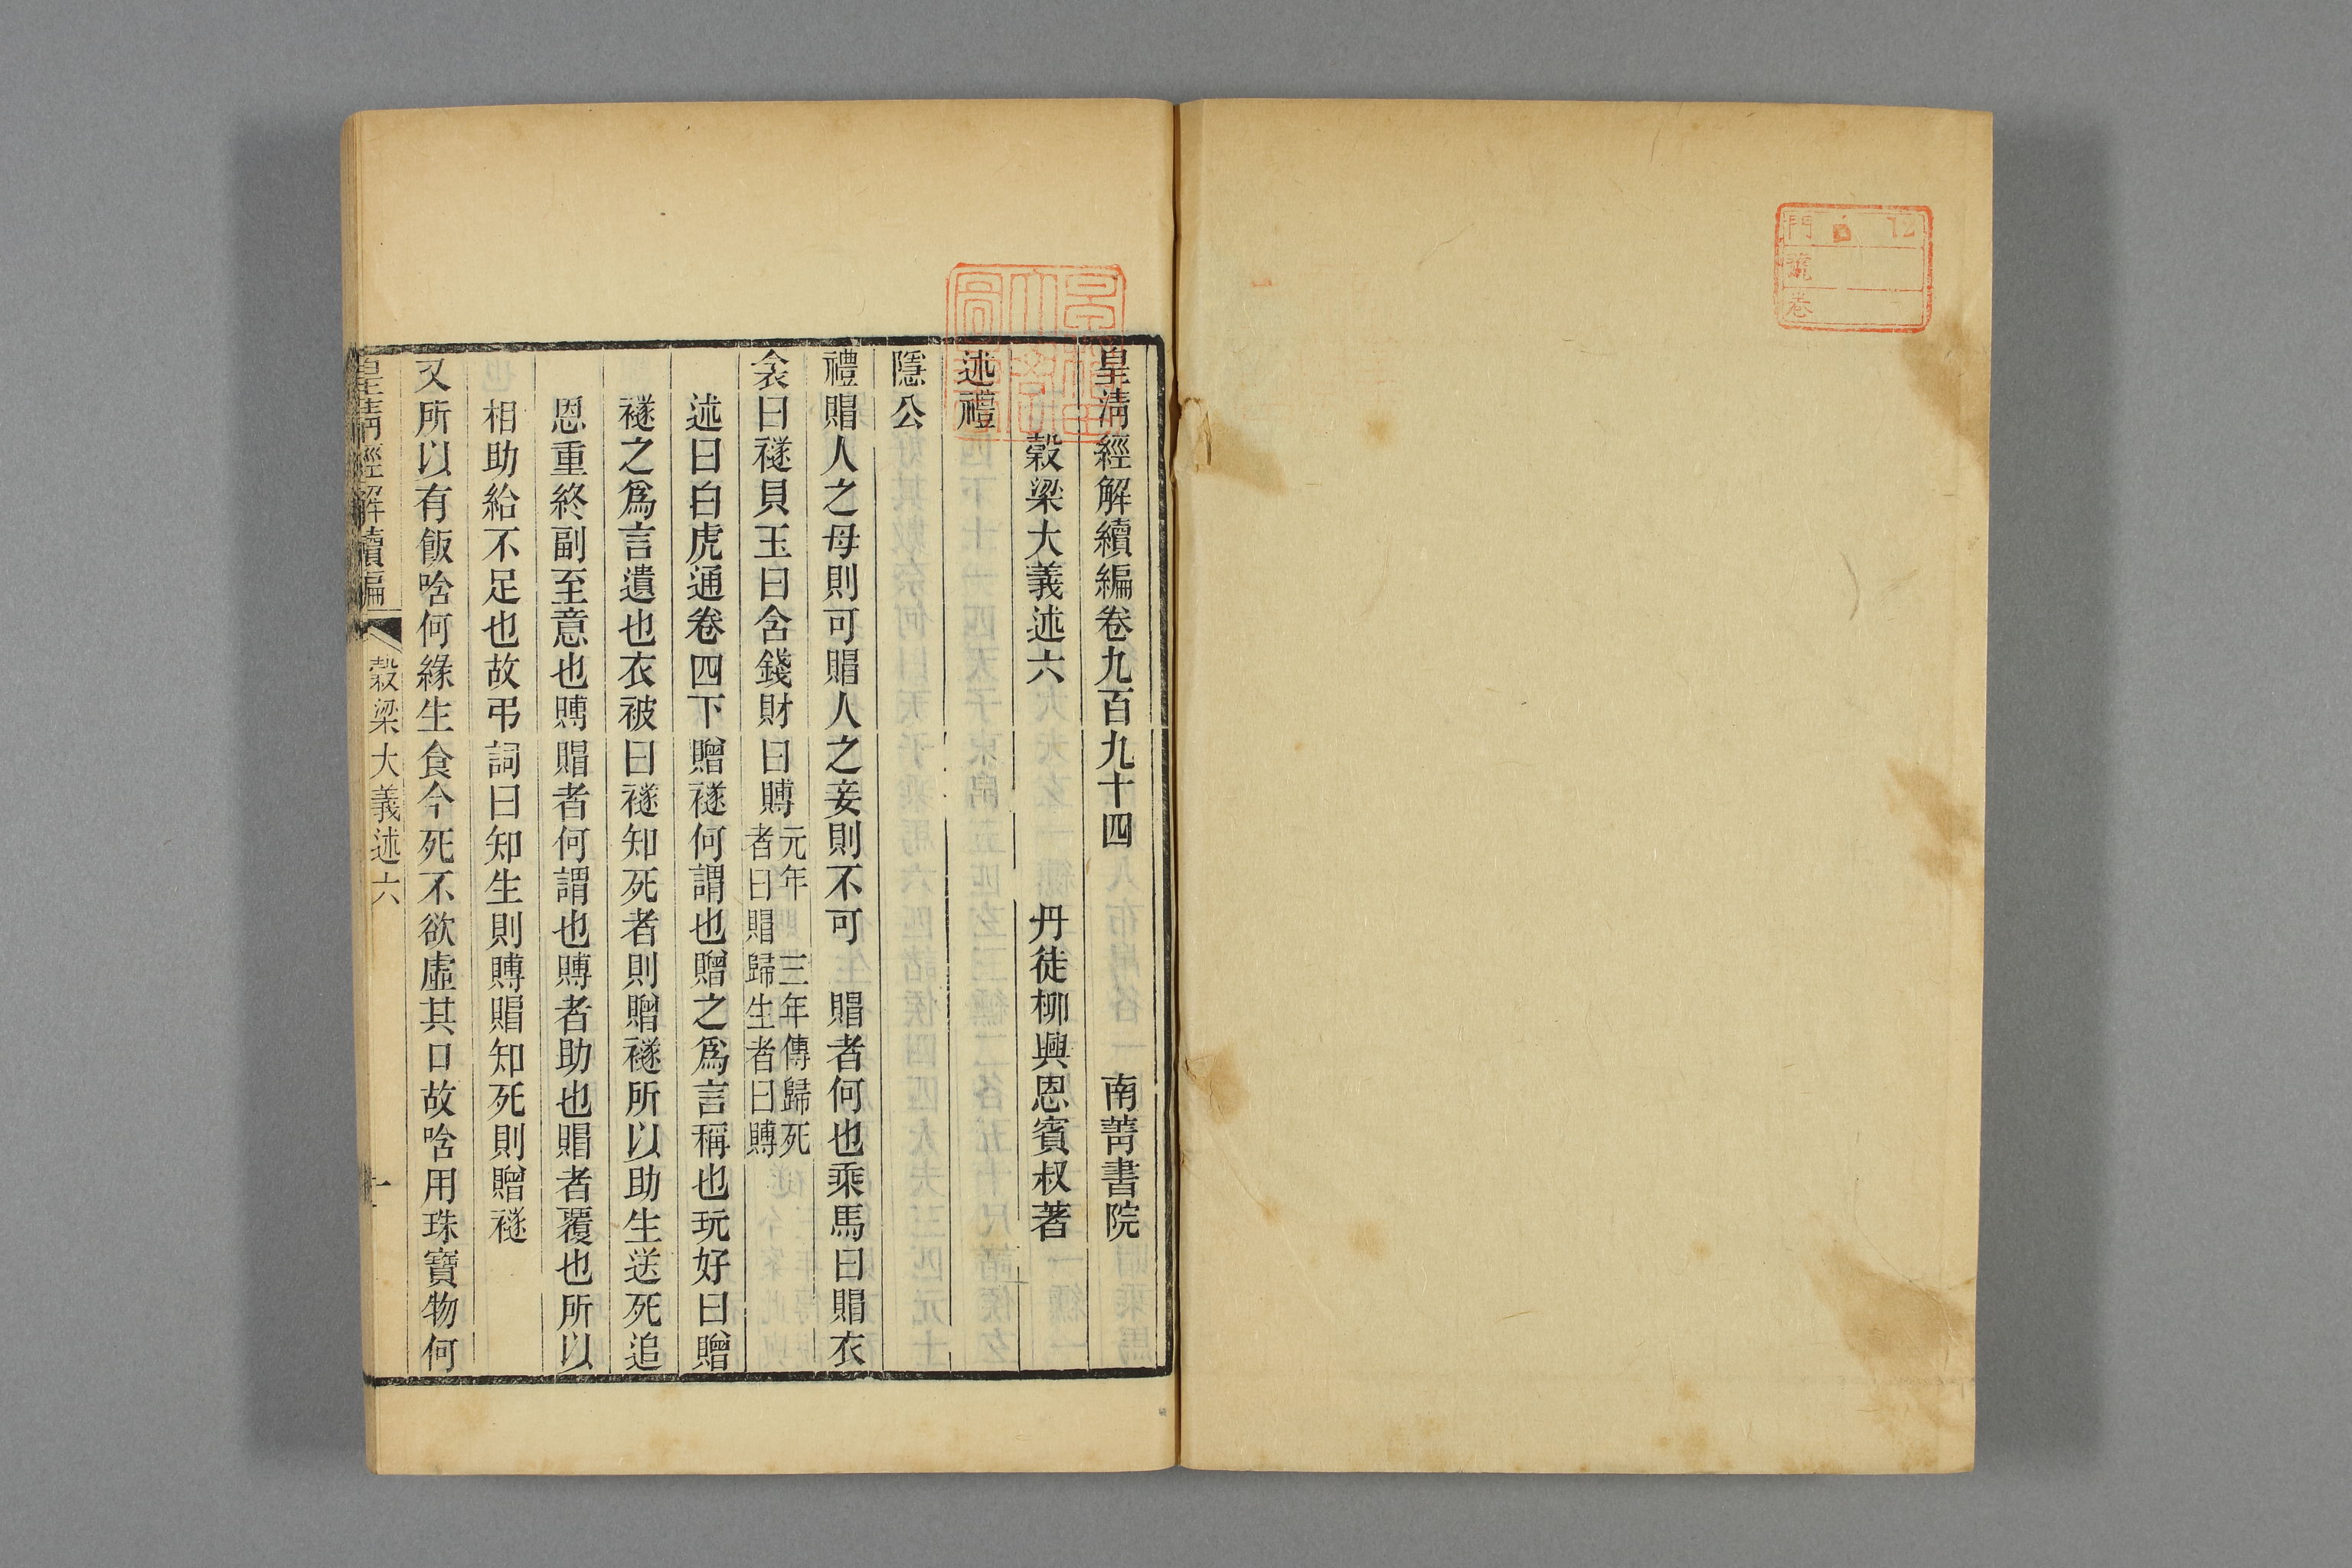 門 12
號
卷
皇清經解續編卷九百九十四 南菁書院
穀梁大義述六 丹徒柳興恩賓叔著
述禮
隱公
禮賵人之母則可賵人之妾則不可 賵者何也乘馬曰賵衣
衾曰襚貝玉曰含錢財曰賻元年 三年傳歸死
者曰賵歸生者曰賻
述曰白虎通卷四下贈襚何謂也贈之爲言稱也玩好曰贈
襚之爲言遺也衣被曰襚知死者則贈襚所以助生送死追
恩重終副至意也賻賵者何謂也賻者助也賵者覆也所以
相助給不足也故弔詞曰知生則賻賵知死則贈襚
又所以有飯唅何緣生食今死不欲虛其口故唅用珠寶物何
皇清經解續編 穀梁大義述六 一